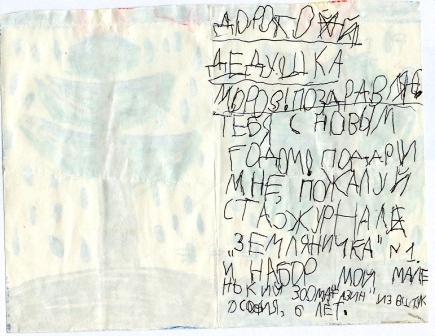 ДОРОГОЙ
ДЕДУШКА
МОРОЗ! ПОЗДРАВЛЯЮ
ТЕБЯ С НОВЫМ
ГОДОМ! ПОДАРИ
МНЕ, ПОЖАЛУЙ
СТА ЖУРНАЛ
„ЗЕМЛЯНИЧКА" №1.
И НАБОР „МОЙ МАЛЕ
НЬКИЙ ЗООМАГАЗИН"
СОФИЯ, 6 ЛЕТ.